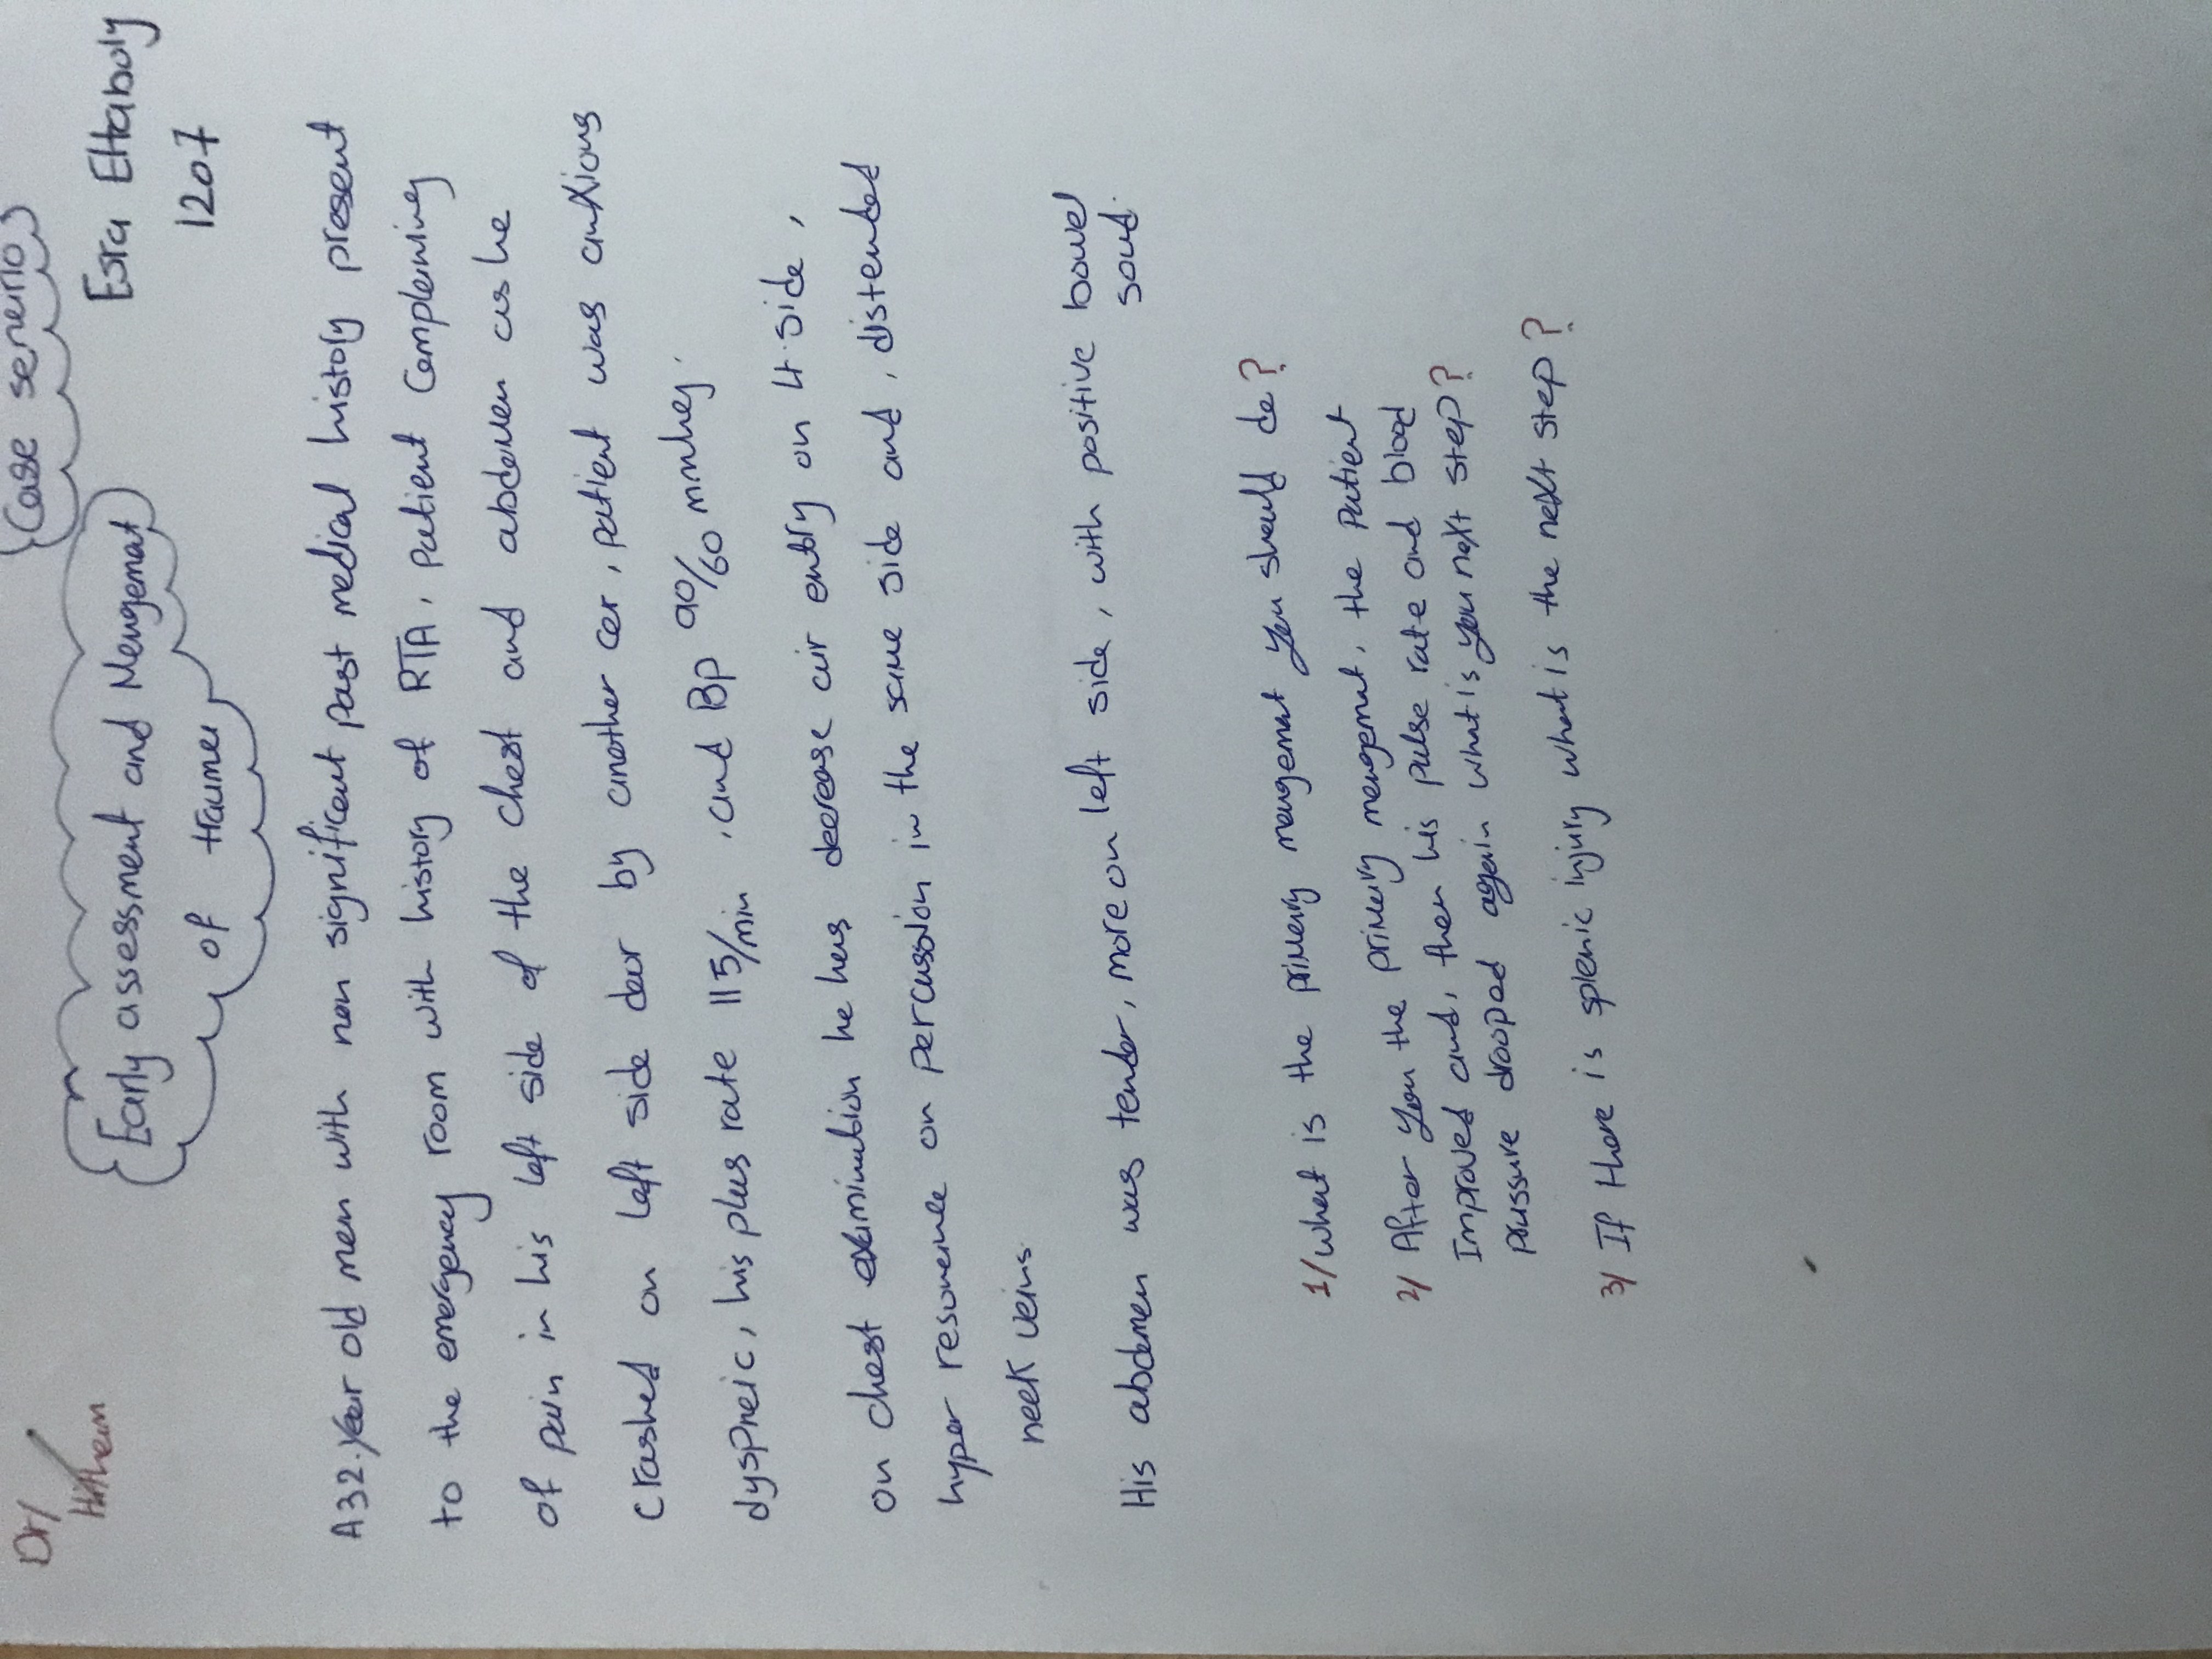 Dr/
Haithem
Case senerio
Early assessment and Mengemat
of traumer
Esra Eltabuly
1207
A 32.year old men with non significant past medical history present
to the emergency room with history of RTA, patient complening
of pain in his left side of the chest and abdemen as he
crashed on left side dour by another cer, patient was anxious
dyspneic, his plus rate 115/min , and Bp 90/60 mmhg.
on chest exminubion he hes decrease air entry on Lt side,
hyper resonence on percussion in the scme side and , distended
neek veins.
His abdemen was tender, more on left side, with positive bowel
soud.
1/ what is the primery mengemat you should do?
2/ After you the primery mengemat, the patient
Improved and, then his pulse rate and blood
prussure droopod again what is you next step?
3/ If there is splenic injury what is the next step?